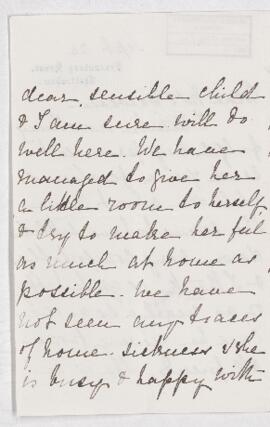 dear, sensible child
& I am sure will do
well here. We have
managed to give her
a little room to herself
& try to make her feel
as much at home as
possible. We have
not seen any traces
of home-sickness & she
is busy & happy with